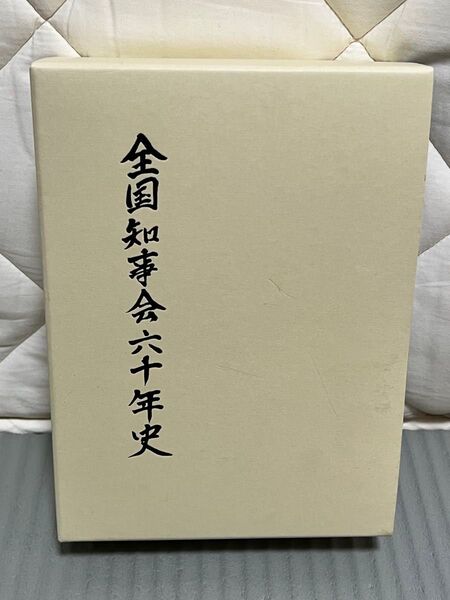 全国知事会六十年史